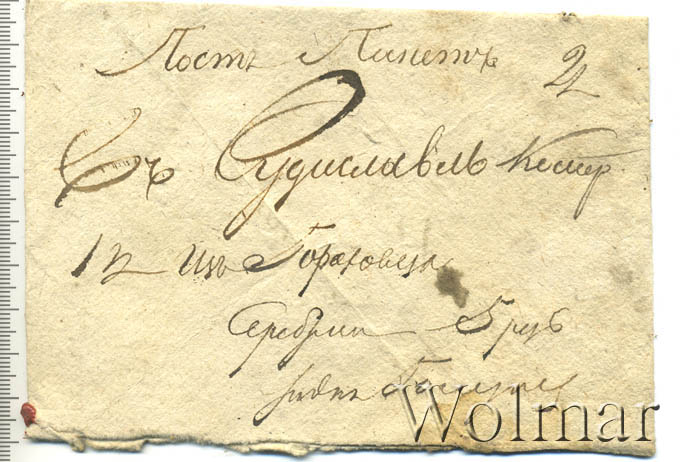 Постъ Пакетъ 2
Въ Судиславль Костр
12 Изъ Гороховца
Серебром 5 руб
Wolmar